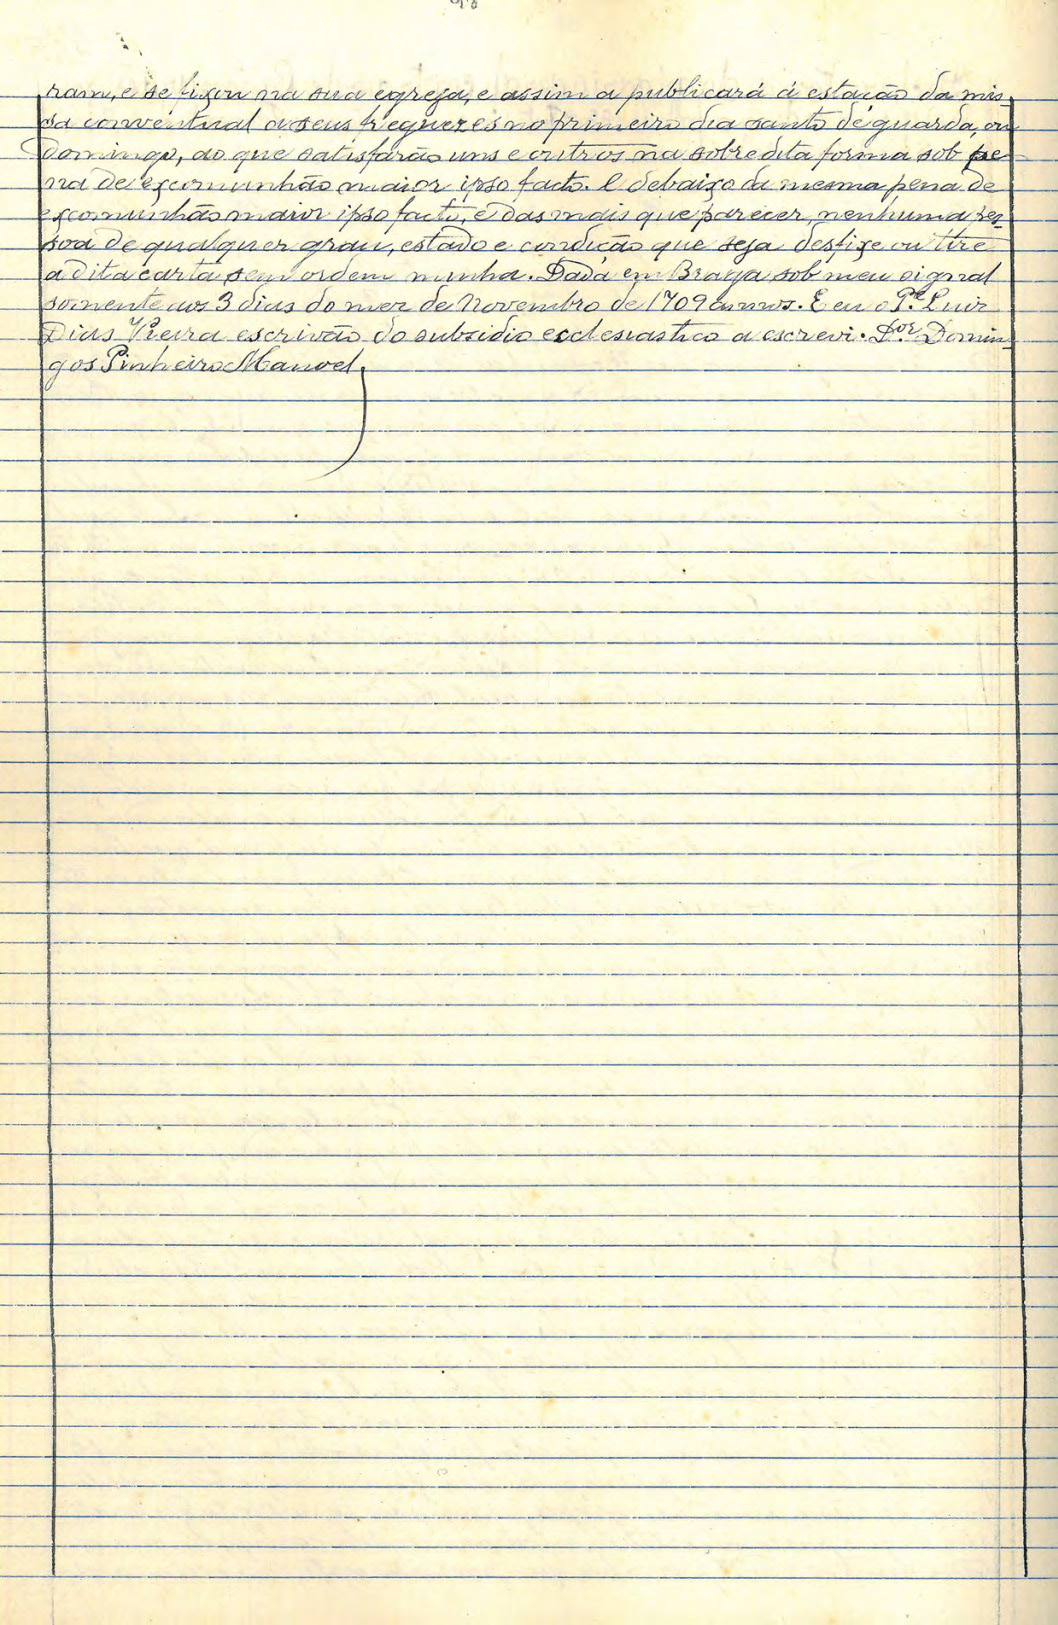 ram, e se fixou na sua egreja, e assim a publicará á estação da mis
sa conventual a seus freguezes no primeiro dia santo de guarda, ou
domingo, ao que satisfarão uns e outros na sobredita forma sob pe
na de excomunhão maior ipso facto. E debaixo da mesma pena de
excomunhão maior ipso facto, e das mais que parecer, nenhuma pes-
soa de qualquer grau, estado e condição que seja desfixe ou tire
a dita carta sem ordem minha. Dada em Braga sob meu signal
somente aos 3 dias do mez de Novembro de 1709 annos. E eu o P.e Luiz
Dias Vieira escrivão do subsidio ecclesiastico a escrevi. D.or Domin-
gos Pinheiro Manoel